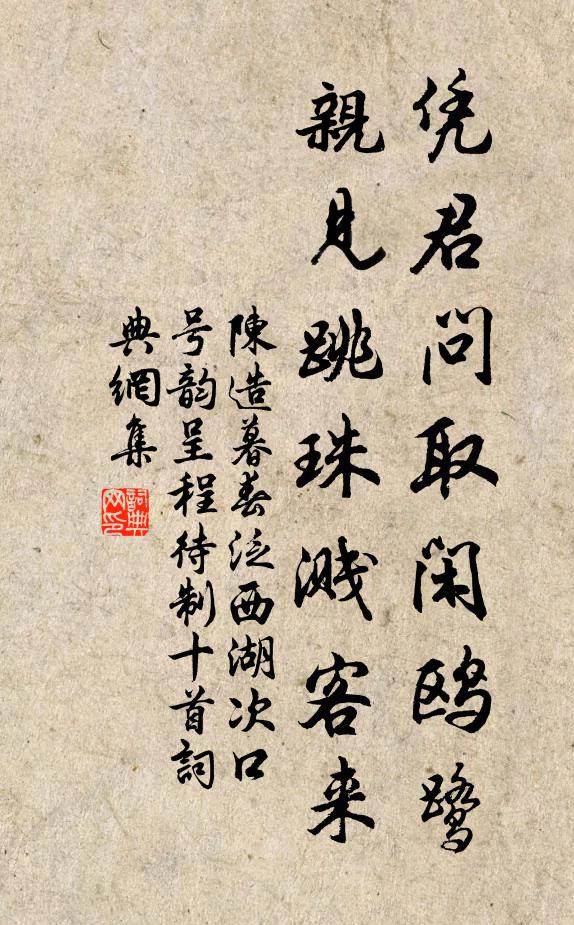 凭君问取闲鸥鹭
親見跳珠溅客来
陳造暮春泛西湖次口
号韵呈程待制十首詞
典網集
詞典
网印